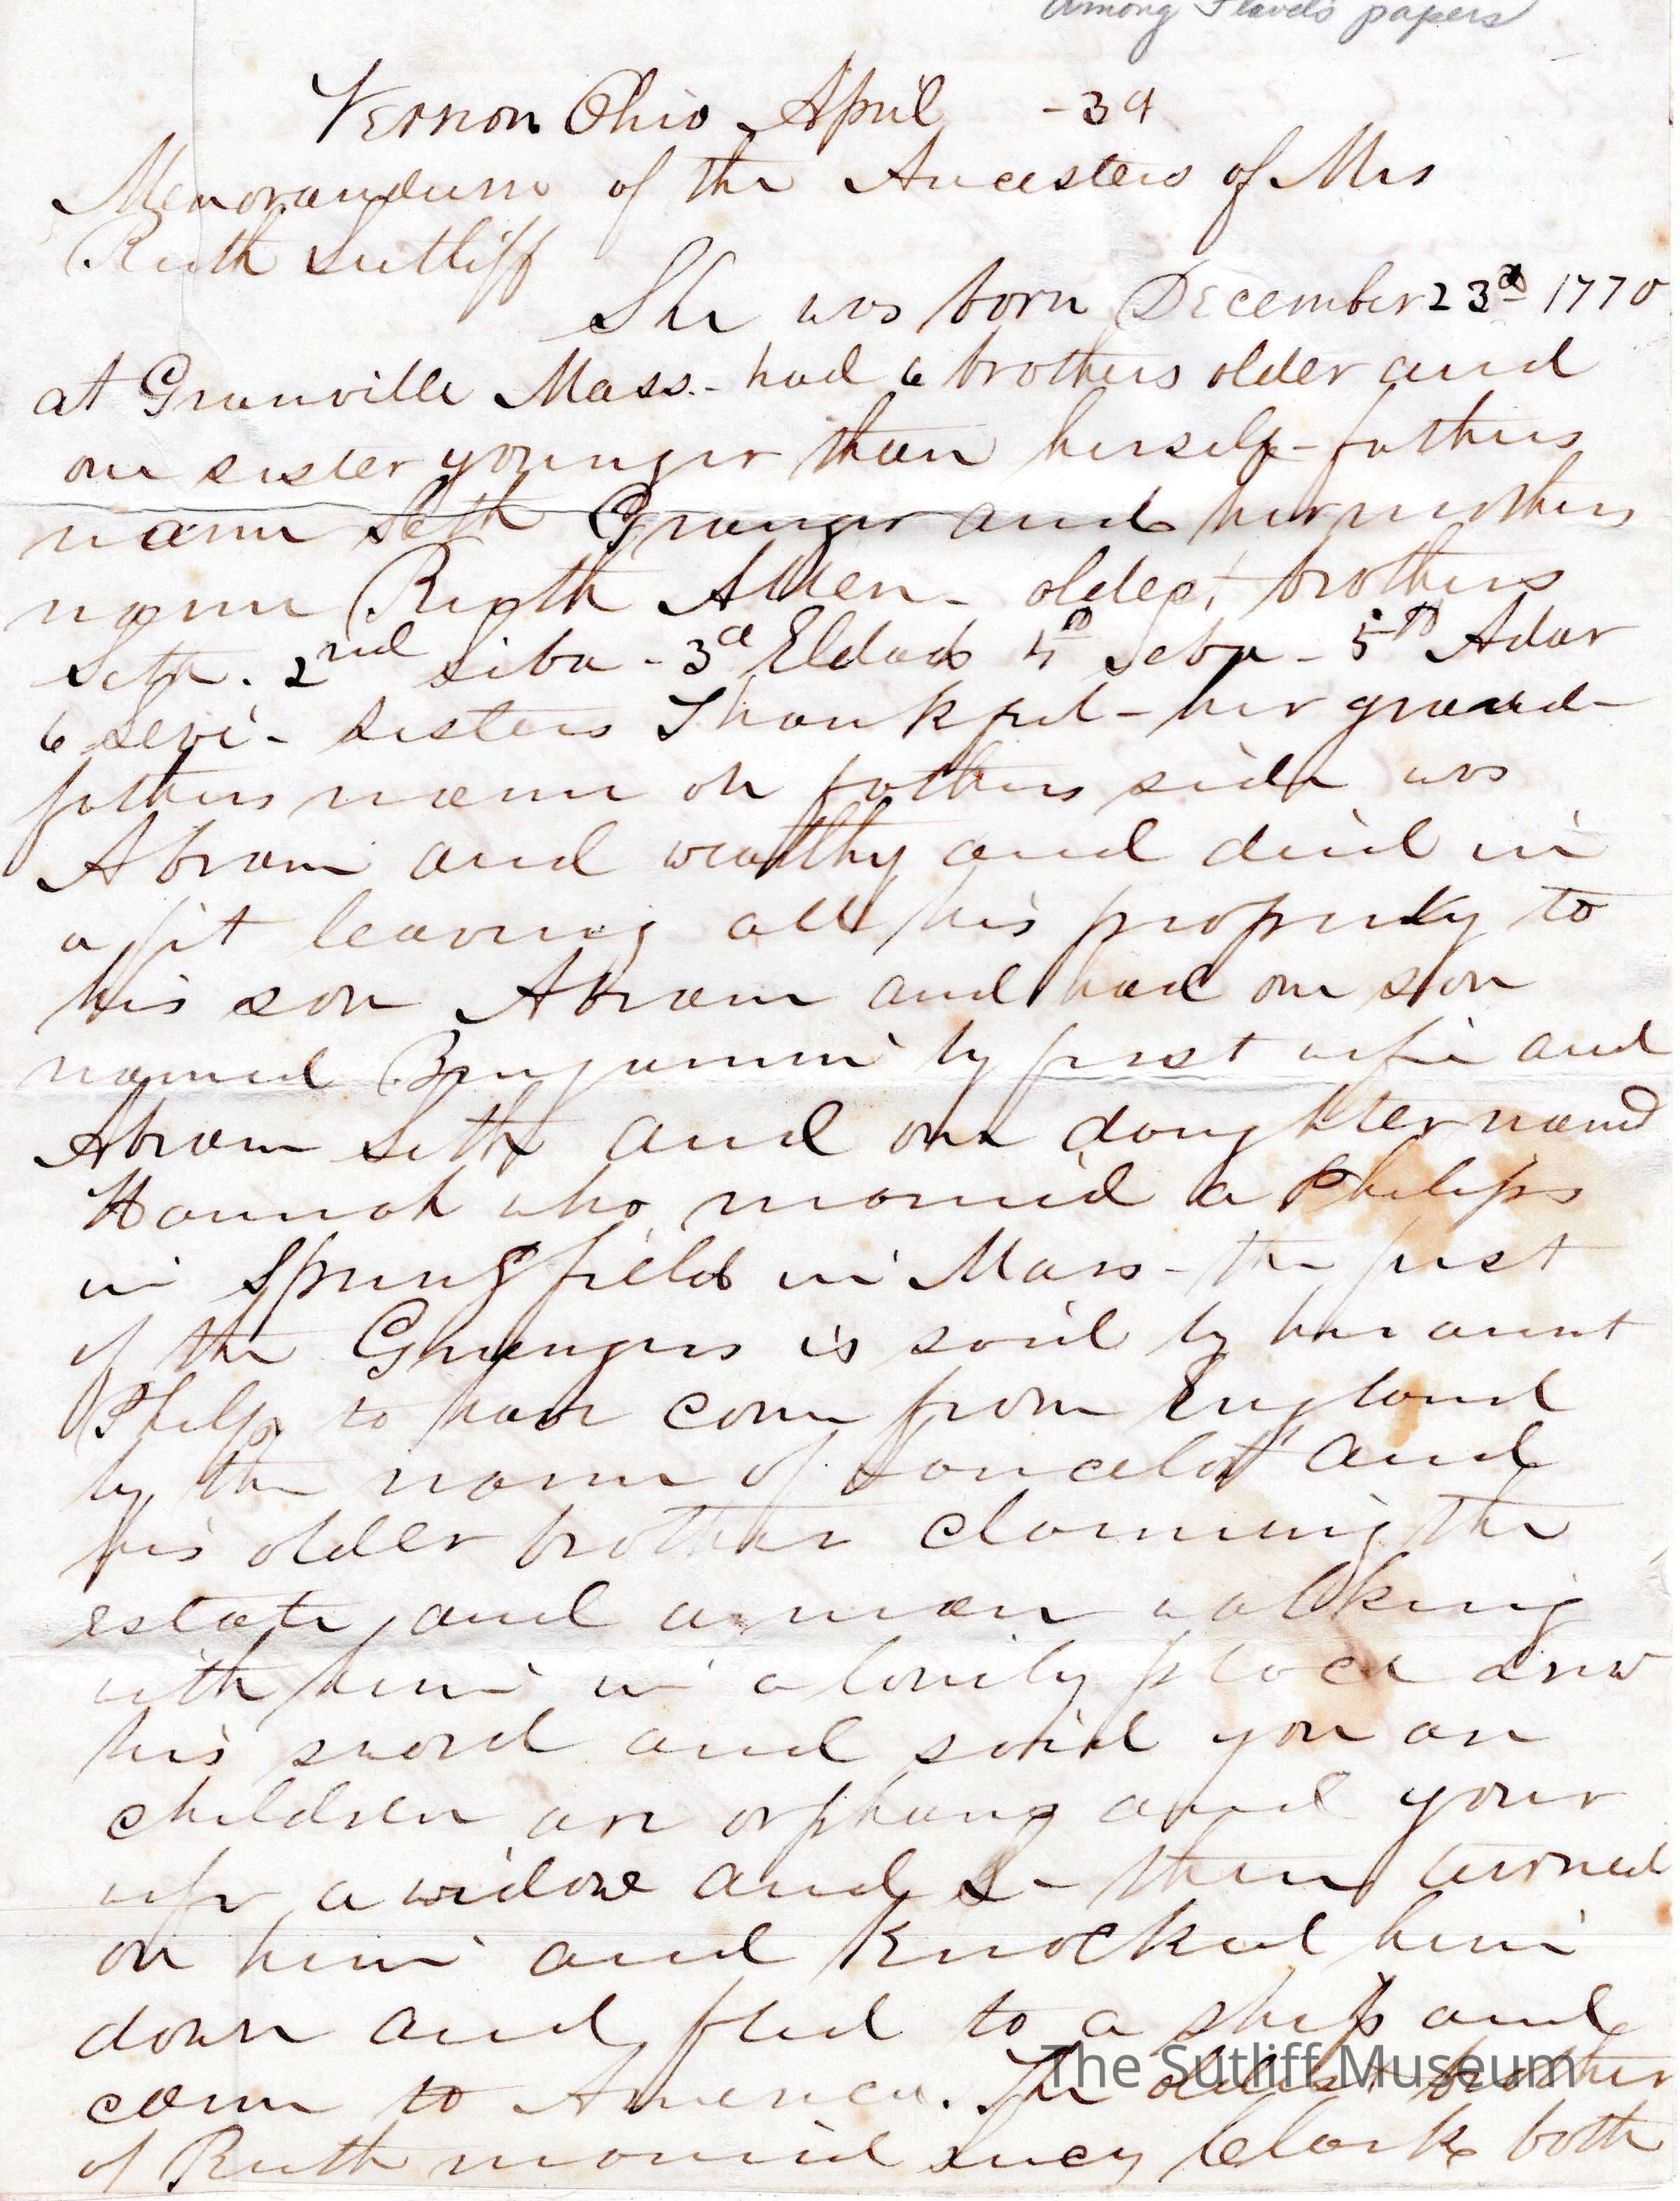 Among Flavel's papers
Vernon Ohio April -39
Memorandum of the Ancesters of Mrs
Ruth Sutliff
She was born December 23d 1770
at Granville Mass.- had 6 brothers older and
one sister younger than herself - fathers
name Seth Granger and her mothers
name Ruth Allen - oldest brothers
Seth. 2nd Siba - 3d Eldad 4th Seba - 5th Adar
6 Levi - sisters Thankful - her grand-
fathers name on fathers side was
Abram and wealthy and died in
a fit leaving all his property to
his son Abram and had one son
named Benjamin by first wife and
Abram Seth and one daughter named
Hannah who married a Phelps
in Springfield in Mass - the first
of the Grangers is said by her aunt
Phelps to have come from England
by the name of Lancelot and
his older brother claiming the
estate and a man walking
with him in a lonely place drew
his sword and said you an
children are orphans and your
wife a widow and L- then turned
on him and knocked him
down and fled to a ship and
came to America. The oldest brother
of Ruth married Lucy Clark both
The Sutliff Museum